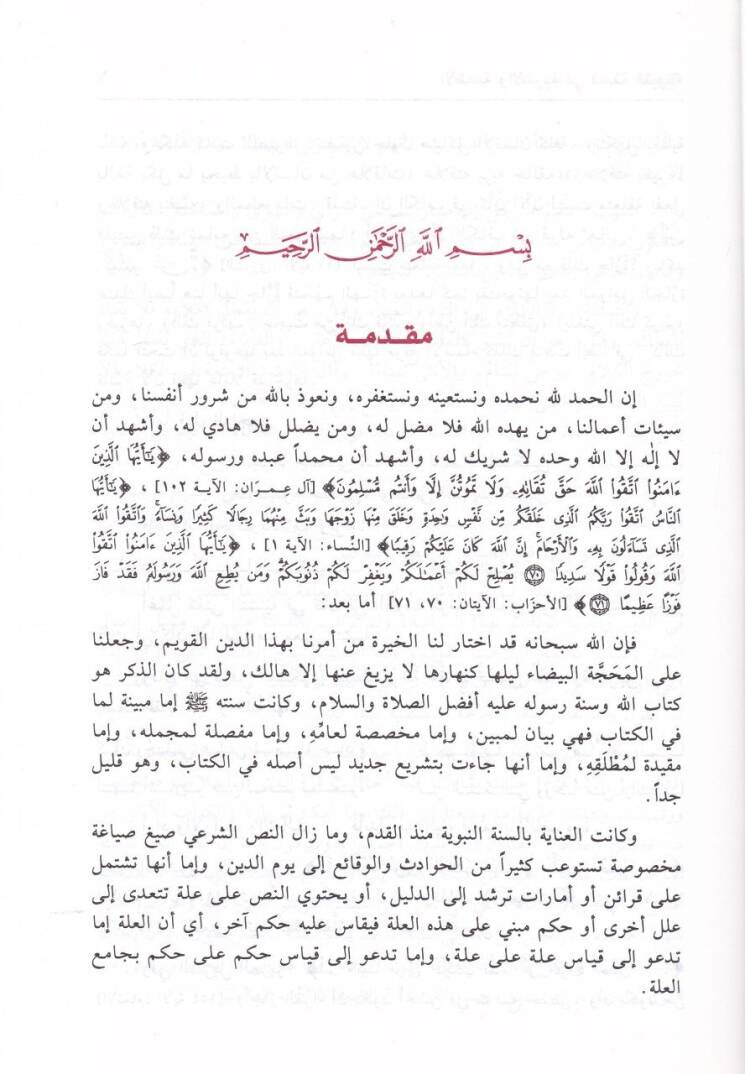 بِسْمِ ٱللَّهِ ٱلرَّحْمَٰنِ ٱلرَّحِيمِ
مقدمة
إن الحمد لله نحمده ونستعينه ونستغفره، ونعوذ بالله من شرور أنفسنا، ومن
سيئات أعمالنا، من يهده الله فلا مضل له، ومن يضلل فلا هادي له، وأشهد أن
لا إلٰه إلا الله وحده لا شريك له، وأشهد أن محمداً عبده ورسوله، ﴿يَٰٓأَيُّهَا ٱلَّذِينَ
ءَامَنُوا۟ ٱتَّقُوا۟ ٱللَّهَ حَقَّ تُقَاتِهِۦ وَلَا تَمُوتُنَّ إِلَّا وَأَنتُم مُّسْلِمُونَ﴾ [آل عِمـرَان: الآية ١٠٢] ، ﴿يَٰٓأَيُّهَا
ٱلنَّاسُ ٱتَّقُوا۟ رَبَّكُمُ ٱلَّذِى خَلَقَكُم مِّن نَّفْسٍ وَٰحِدَةٍ وَخَلَقَ مِنْهَا زَوْجَهَا وَبَثَّ مِنْهُمَا رِجَالًا كَثِيرًا وَنِسَآءً ۚ وَٱتَّقُوا۟ ٱللَّهَ
ٱلَّذِى تَسَآءَلُونَ بِهِۦ وَٱلْأَرْحَامَ ۚ إِنَّ ٱللَّهَ كَانَ عَلَيْكُمْ رَقِيبًا﴾ [النِّساء: الآية ١] ، ﴿يَٰٓأَيُّهَا ٱلَّذِينَ ءَامَنُوا۟ ٱتَّقُوا۟
ٱللَّهَ وَقُولُوا۟ قَوْلًا سَدِيدًا ٧٠ يُصْلِحْ لَكُمْ أَعْمَٰلَكُمْ وَيَغْفِرْ لَكُمْ ذُنُوبَكُمْ ۗ وَمَن يُطِعِ ٱللَّهَ وَرَسُولَهُۥ فَقَدْ فَازَ
فَوْزًا عَظِيمًا ٧١﴾ [الأحزَاب: الآيتان: ٧٠، ٧١] أما بعد:
فإن الله سبحانه قد اختار لنا الخيرة من أمرنا بهذا الدين القويم، وجعلنا
على المَحَجَّة البيضاء ليلها كنهارها لا يزيغ عنها إلا هالك، ولقد كان الذكر هو
كتاب الله وسنة رسوله عليه أفضل الصلاة والسلام، وكانت سنته ﷺ إما مبينة لما
في الكتاب فهي بيان لمبين، وإما مخصصة لعامِّه، وإما مفصلة لمجمله، وإما
مقيدة لمُطْلَقِهِ، وإما أنها جاءت بتشريع جديد ليس أصله في الكتاب، وهو قليل
جداً.
وكانت العناية بالسنة النبوية منذ القدم، وما زال النص الشرعي صيغ صياغة
مخصوصة تستوعب كثيراً من الحوادث والوقائع إلى يوم الدين، وإما أنها تشتمل
على قرائن أو أمارات ترشد إلى الدليل، أو يحتوي النص على علة تتعدى إلى
علل أخرى أو حكم مبني على هذه العلة فيقاس عليه حكم آخر، أي أن العلة إما
تدعو إلى قياس علة على علة، وإما تدعو إلى قياس حكم على حكم بجامع
العلة.